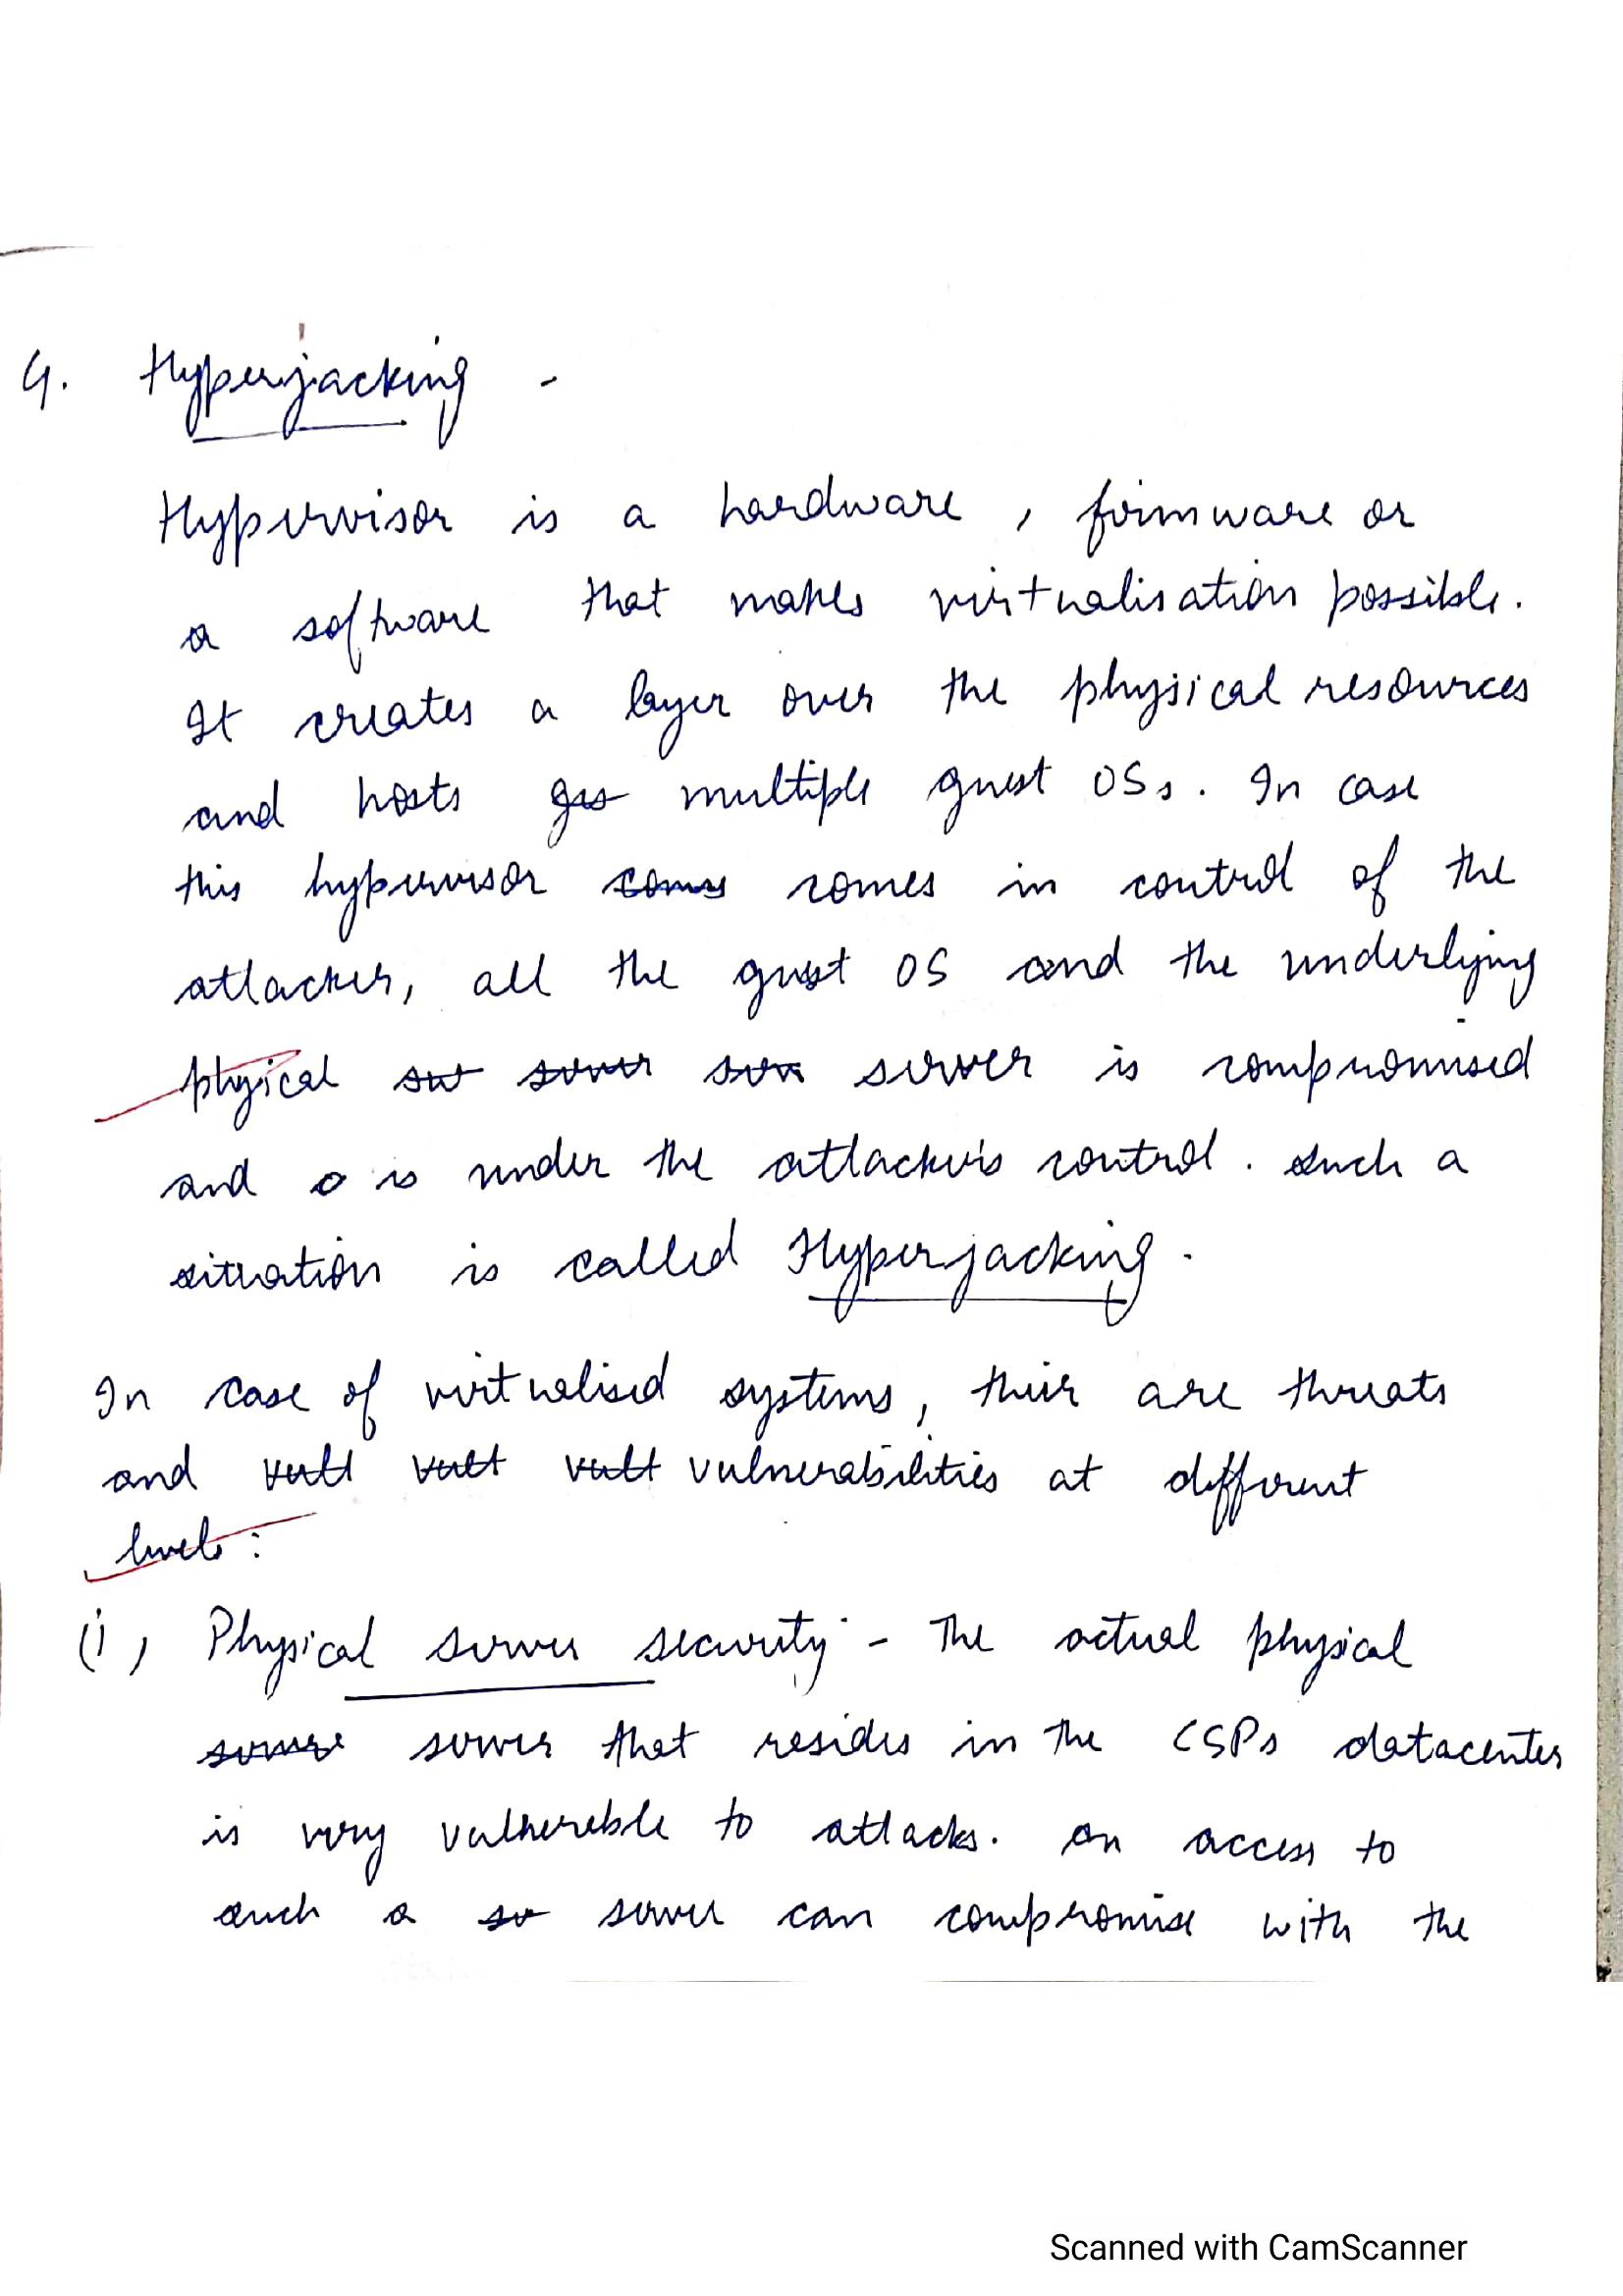 4. Hyperjacking -
Hypervisor is a hardware, firmware or
a software that makes virtualisation possible.
It creates a layer over the physical resources
and hosts gus multiple guest OSs. In case
this hypervisor comes comes in control of the
attacker, all the guest OS and the underlying
phyical ser server serv server is compromised
and o is under the attacker's control. Such a
situation is called Hyperjacking.
In case of virtualised systems, their are threats
and vult vult vult vulnerabilities at different
levels:
(i) Physical server security - The actual physical
server that resides in the CSPs datacenter
is very vulnereble to attacks. An access to
such a se server can compromise with the
Scanned with CamScanner